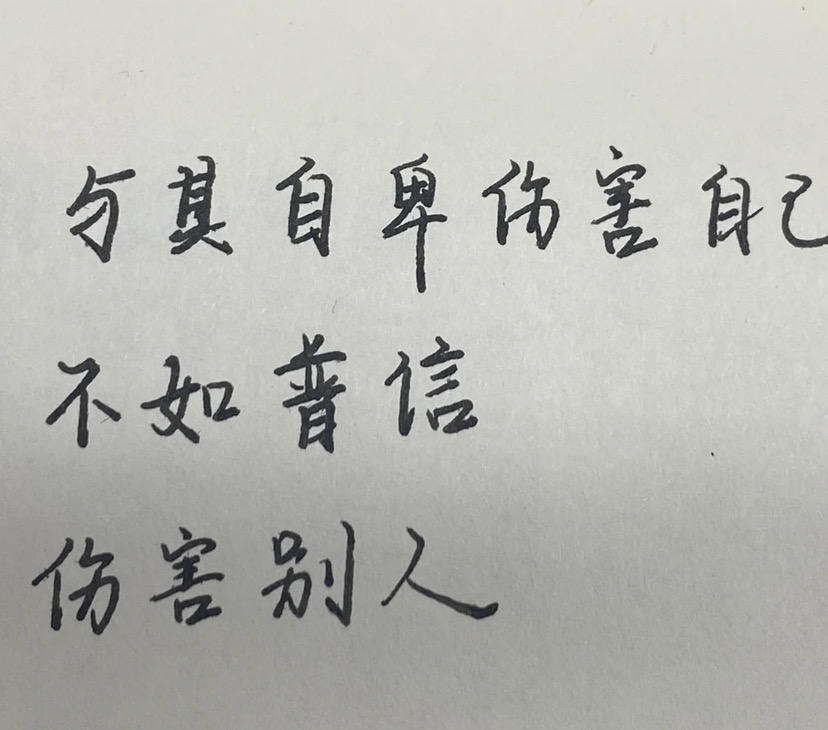 与其自卑伤害自己
不如普信
伤害别人